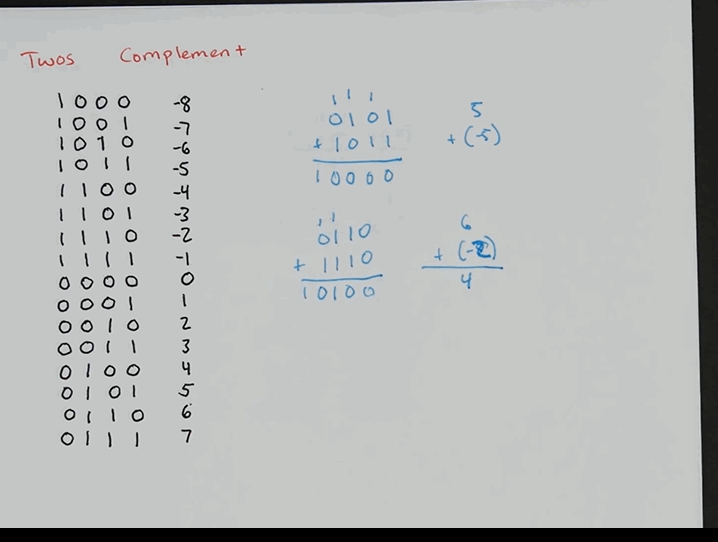 Twos Complement
1000 -8
1001 -7
1010 -6
1011 -5
1100 -4
1101 -3
1110 -2
1111 -1
0000 0
0001 1
0010 2
0011 3
0100 4
0101 5
0110 6
0111 7
1 1 1
0101
+ 1011
10000
5
+ (-5)
1 1
0110
+ 1110
10100
6
+ (-2)
4